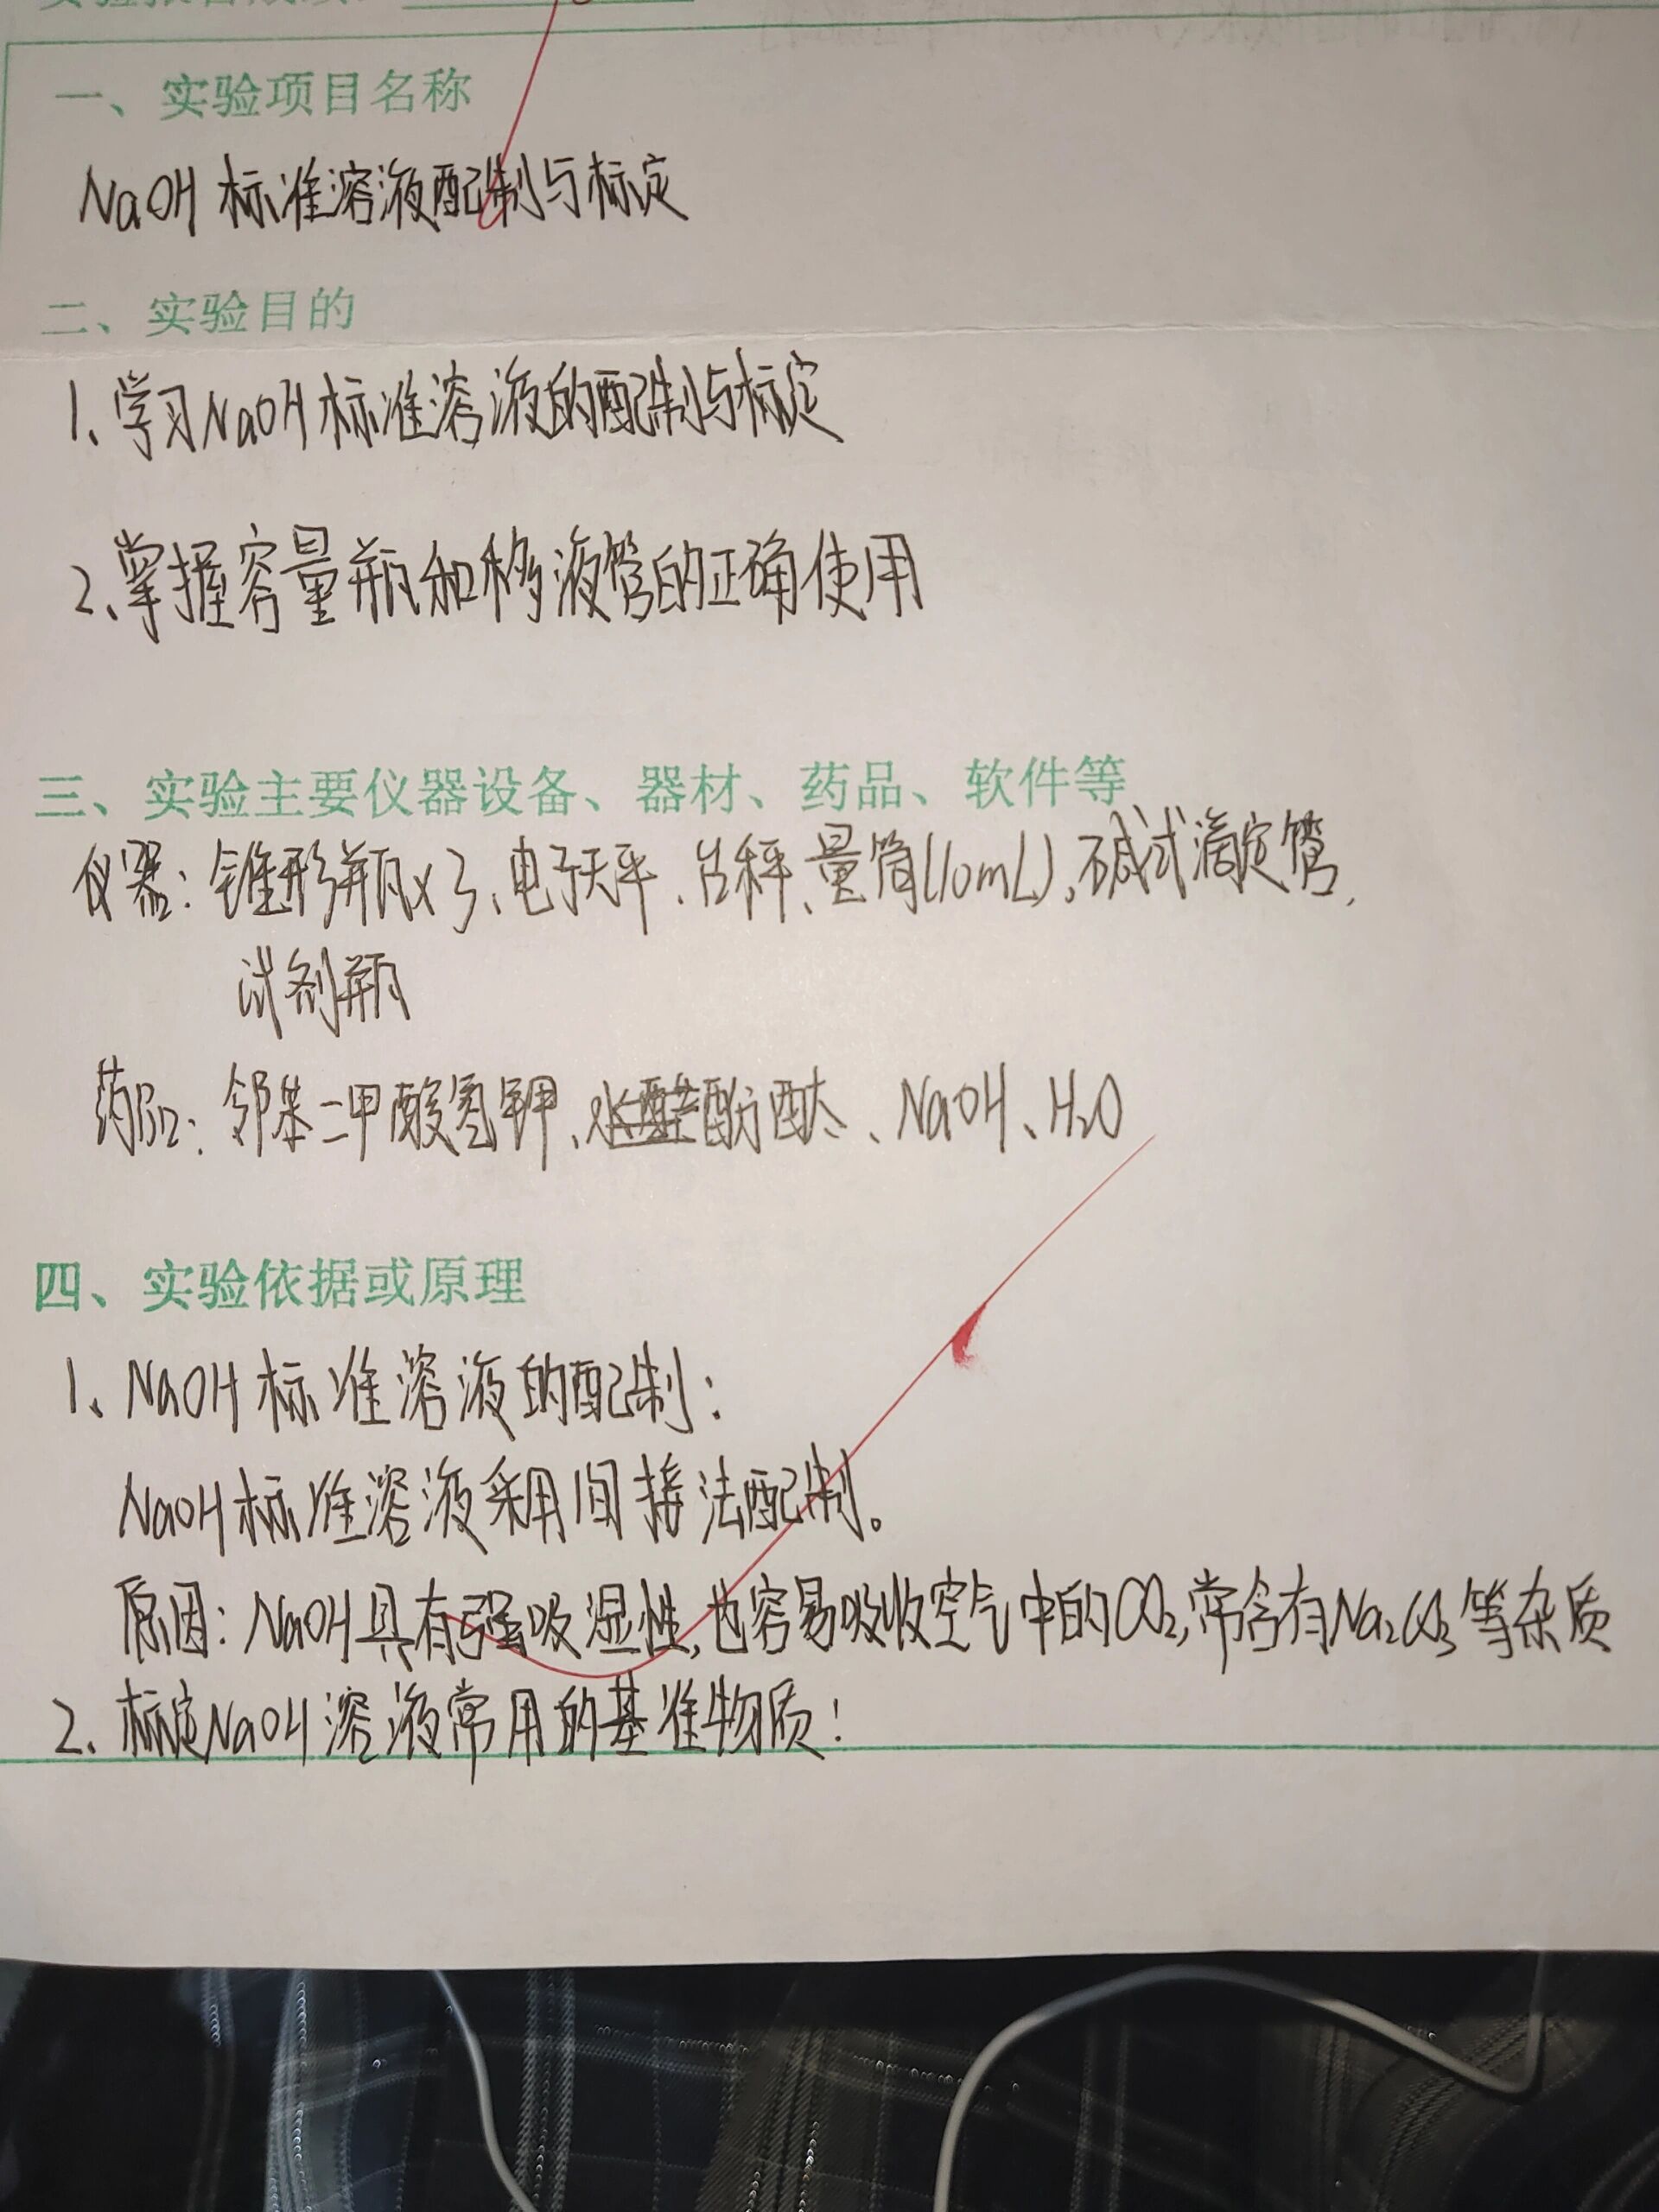 一、实验项目名称
NaOH 标准溶液配制与标定
二、实验目的
1、学习NaOH标准溶液的配制与标定
2、掌握容量瓶和移液管的正确使用
三、实验主要仪器设备、器材、药品、软件等
仪器：锥形瓶x3、电子天平、台秤、量筒(10mL)、碱式滴定管、
试剂瓶
药品：邻苯二甲酸氢钾、酚酞、NaOH、H₂O
四、实验依据或原理
1、NaOH标准溶液的配制：
NaOH标准溶液采用间接法配制。
原因：NaOH具有强吸湿性,也容易吸收空气中的CO₂,常含有Na₂CO₃等杂质
2、标定NaOH溶液常用的基准物质：